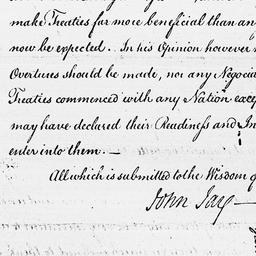 make Treaties far more beneficial than an
now be expected. In his Opinion however n
Overtures should be made, nor any Negocia
Treaties commenced with any Nation exce
may have declared their Readiness and In
enter into them.—
All which is submitted to the Wisdom of
John Jay—